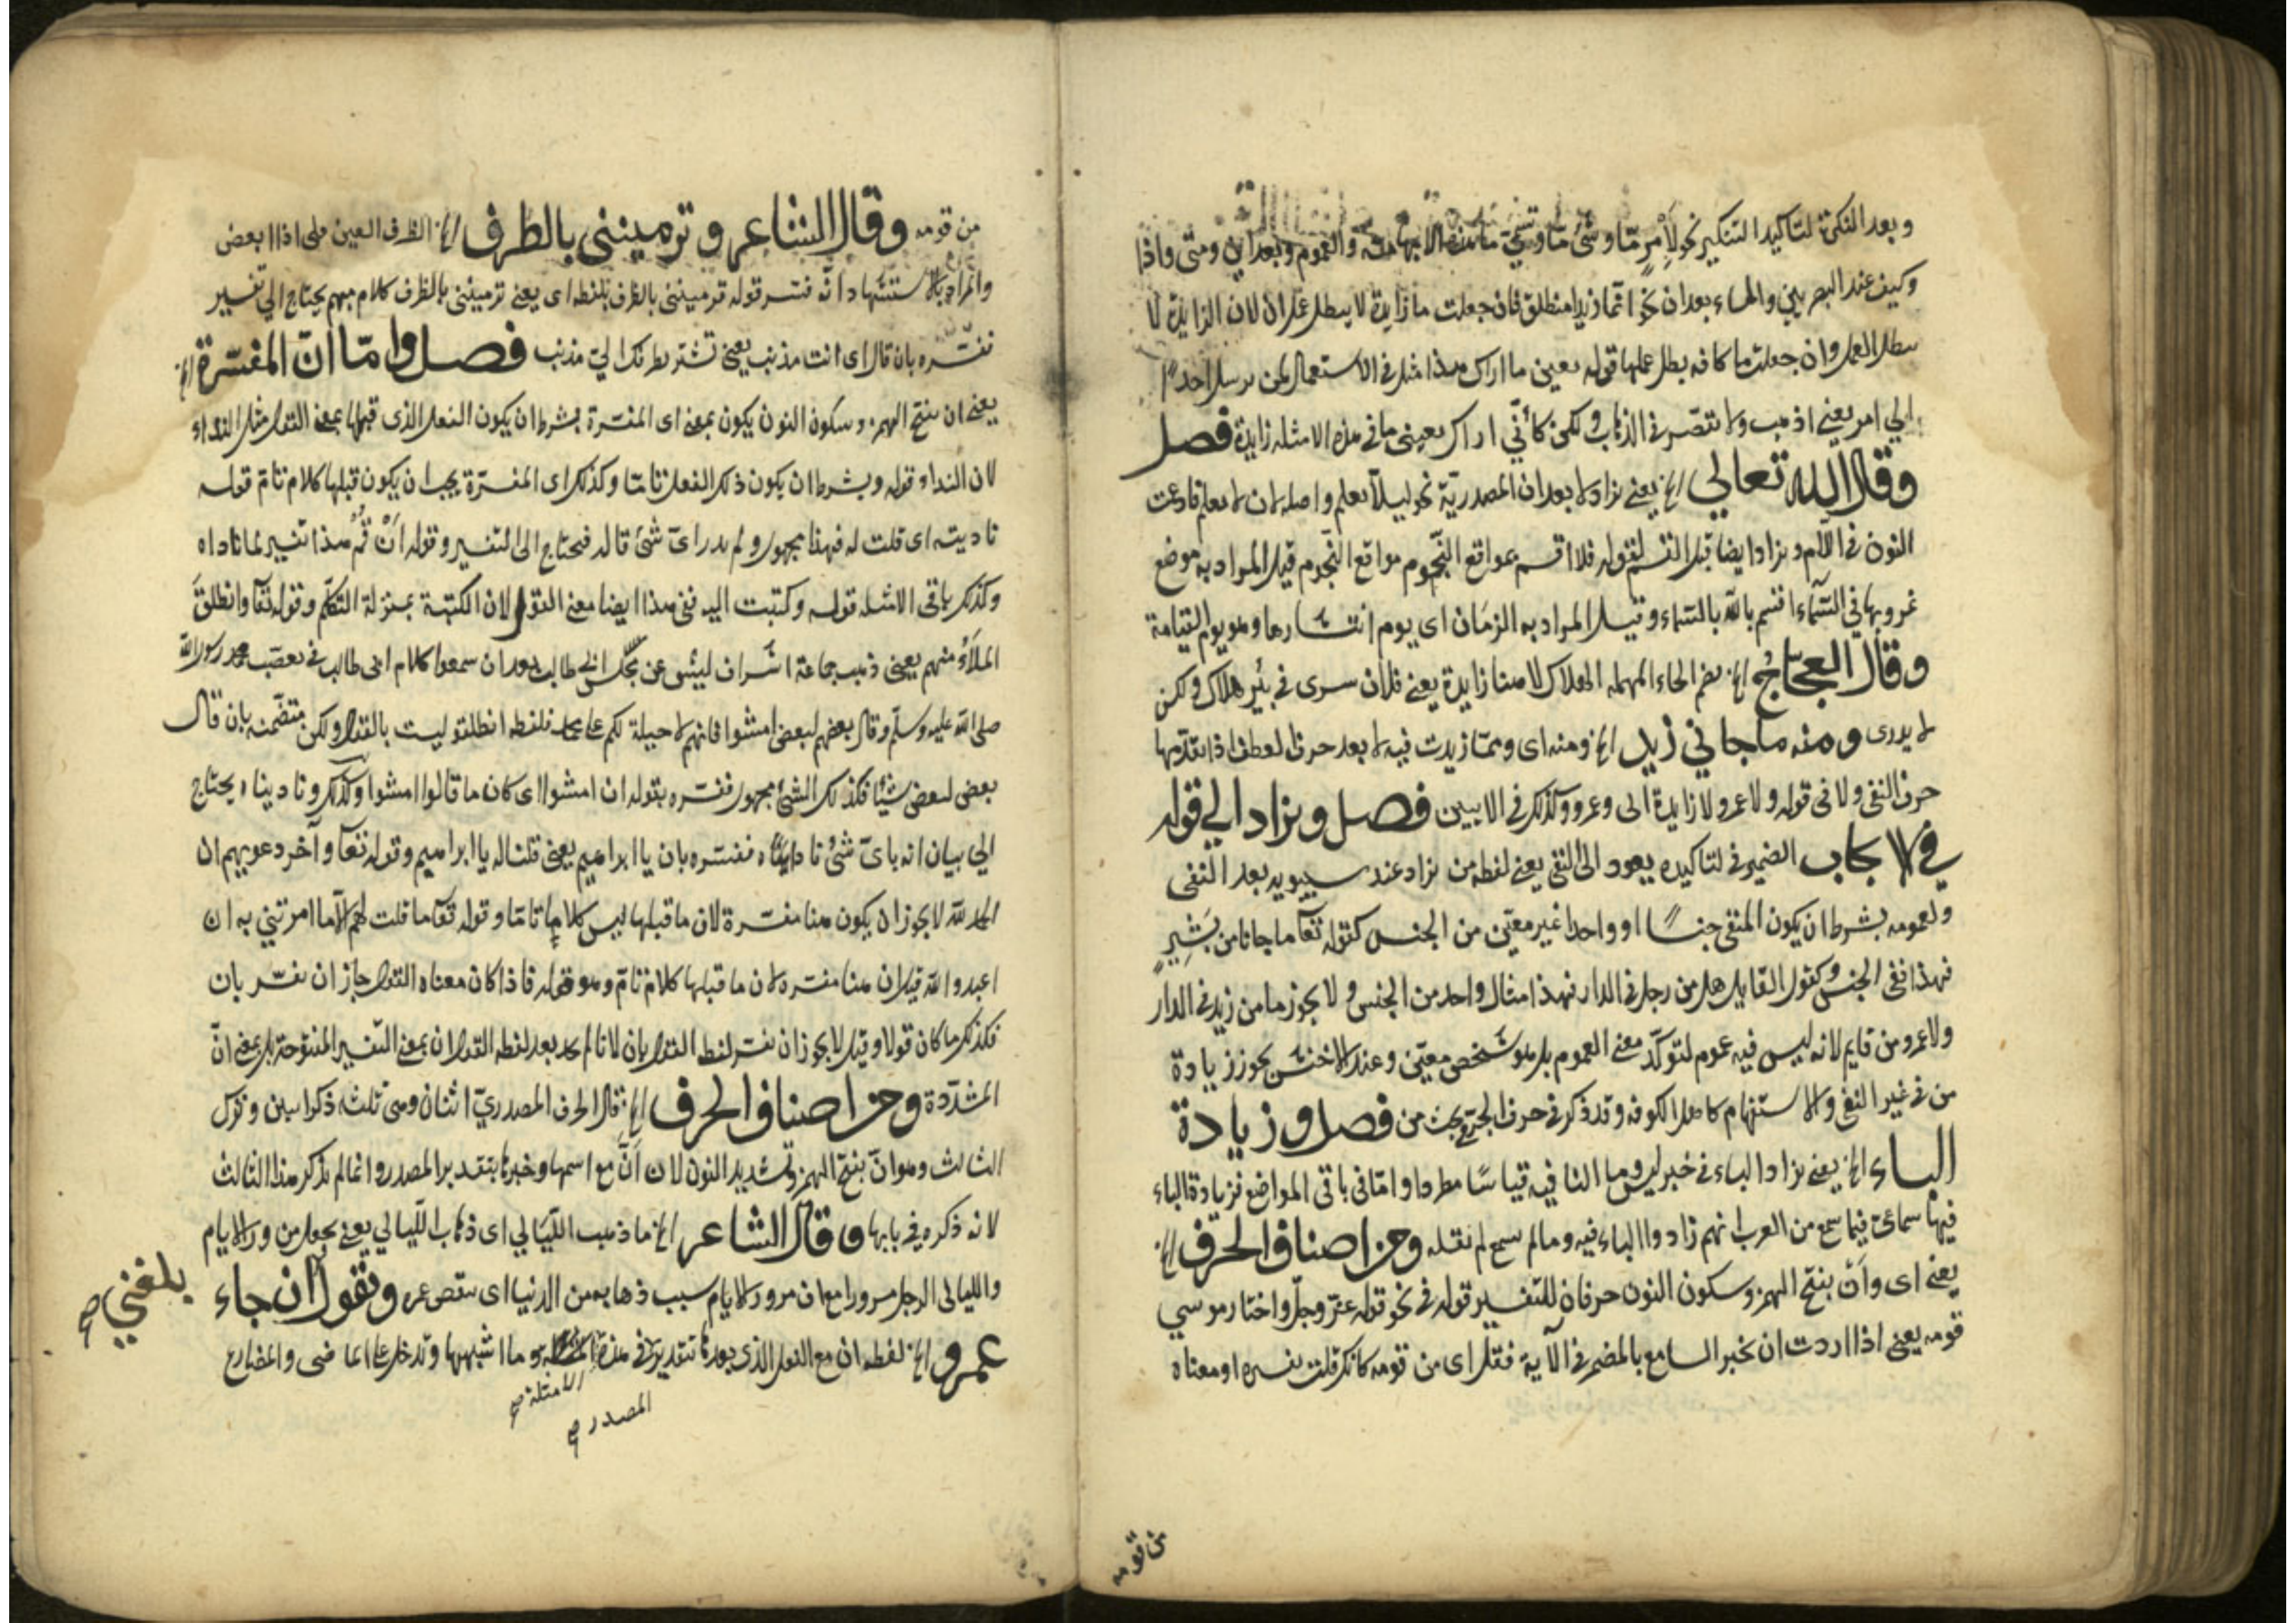 وبعد النكرة لتاكيد التنكير نحو لأمرٍ مّا وشئ مّا والعموم وبعد اين ومتى واذا
وكيف عند البصريين والهاء بعد ان نحو انّما زيدا منطلق فان جعلت ما زايدة لا يبطل عمل ان لان الزايدة لا
يبطل العمل وان جعلت ما كافه بطل عملها قوله بعين ما اراك هذا مثل في الاستعمال لمن يرسل احدًا
الي امر يعني اذهب ولا تقصّر في الذهاب ولكن كأنّي اراك بعيني ما في هذه الامثله زايدة فصل
وقال الله تعالي الخ يعني يزاد لا بعد ان المصدريّة نحو ليلّا يعلم واصله لان لا يعلم فادغمت
النون في اللّام ويزاد ايضا قبل القسم كقوله فلا اقسم بمواقع النّجوم مواقع النّجوم قيل المراد به موضع
غروبها في السّمآء اقسم باللّه بالسّماء وقيل المراد به الزمان اى يوم انتشارها وهو يوم القيامة
وقال العجّاج الخ بضم الحاء المهمله الهلاك لا هنا زايدة يعني فلان سرى في بئر هلاك ولكن
لا يدرى ومنه ما جاني زيد الخ ومنه اى وممّا زيدت فيه لا بعد حرف العطف اذا تقدّمها
حرف النفى ولا في قوله ولا عمرو لا زايدة اى وعمرو وكذلك في الابيين فصل ويزاد الي قوله
في الايجاب الضمير في لتاكيده يعود الى النفي يعني لفظه من يزاد عند سيبويه بعد النفى
ولعمومه بشرط ان يكون المنفى جنسًا او واحدا غير معيّن من الجنس كقوله تعآ ما جانا من بَشِيرٍ
فهذا نفى الجنس وكقول القايل هل من رجل في الدار فهذا مثال واحد من الجنس ولا يجوز ما من زيد في الدار
ولا عمرو من قايم لانه ليس فيه عموم لتوكّد معنى العموم بل هو شخص معيّن وعند الاخفش يجوز زيادة
من في غير النفى والاستفهام كاهل الكوفه وقد ذكر في حرف الجر في بحث من فصل وزيادة
الباء الخ يعني يزاد الباء في خبر ليس وما النافيه قياسًا مطردا وامّا في باقى المواضع فزيادة الباء
فيها سماعىّ فيما سمع من العرب انهم زادوا الباء فيه وما لم يسمع لم نقله ومن اصناف الحرف الخ
يعني اى وأن بفتح الهمز وسكون النون حرفان للتفسير قوله في نحو قوله عزّ وجلّ واختار موسي
قومه يعني اذا اردت ان تخبر السامع بالمضمر في الآية فتقل اى من قومه كانك قلت تفسيره او معناه
من قومه
من قومه وقال الشاعر وترمينني بالطرف الخ الطرف العين
والمراد بالاستشهاد انّه فسّر قوله ترمينني بالطرف بلفظه اى يعني ترمينني بالطرف كلام مبهم يحتاج الي تفسير
ففسّره بان قال اى انت مذنب يعني مذنب فصل وامّا ان المفسّرة الخ
يعني ان بفتح الهمزه وسكون النون يكون بمعنى اى المفسّرة بشرط ان يكون الفعل الذى قبلها بمعنى القول مثل النداء
لان النداء قوله وبشرط ان يكون ذلك الفعل تامّا وكذلك اى المفسّرة يجب ان يكون قبلها كلام تامّ قوله
ناديته اى قلت له فهذا مجهول ولم يدر اىّ شئ قال له فيحتاج الى التفسير وقوله أنْ قُمْ هذا تفسير لما ناداه
وكذلك باقى الامثله قوله وكتبت اليه ففى هذا ايضا معنى القول لان الكتبة بمنزلة التكلّم وقوله تعآ وانطلق
الملأ منهم يعني ذهب جماعة اشراف ليش عن مجلس ابى طالب بعد ان سمعوا كلام ابى طالب في تعصّب محمد رسول اللّه
صلى اللّه عليه وسلّم وقال بعضهم لبعض امشوا فانهم لا حيلة لكم على محمد فلفظه انطلقو ليست بالقول ولكن متضمّنه بان قال
بعض لبعض شيئا فكذلك الشئ مجهول ففسّره بقوله ان امشوا اى كان ما قالوا امشوا وكذلك وناديناه يحتاج
الي بيان انه باىّ شئ ناديناه ففسّره بان يا ابراهيم يعني قلنا له يا ابراهيم وقوله تعآ وآخر دعويهم ان
الحمد للّه لا يجوز ان يكون هنا مفسّرة لان ما قبلها ليس كلاما تامّا وقوله تعآ ما قلت لهم الّا ما امرتني به ان
اعبدوا اللّه قيل ان هنا مفسّره لان ما قبلها كلام تامّ وهو قوله فاذا كان معناه القول جاز ان يفسّر بان
فكذلك ما كان قولا وقيل لا يجوز ان يفسّر لفظ القول بان لانا لم نجد بعد لفظ القول ان بمعنى التّفسير المفتوحة بل بمعنى انّ
المشدّدة ومن اصناف الحرف الخ قال الحرف المصدريّ اثنان وهى ثلثه ذكر اثنين وترك
الثالث وهو انّ بفتح الهمز وتشديد النون لان أنَّ مع اسمها وخبرها بتقدير المصدر وانما لم يذكر هذا الثالث
لانه ذكره في بابها وقال الشاعر الخ ما ذهب اللّيالي اى ذهاب اللّيالي يعني بجعل من ورا الايام
والليالى الرجل مسرورا مع ان مرور الايام سبب ذهابه من الدنيا اى ينقص عمره وتقول ان جاء
بلغني صح
عمرو الخ لفظه ان مع الفعل الذى بعدها تقديره في هذه وما اشبهها وتدخل على الماضى والمضارع
الامثلة صح
المصدر صح